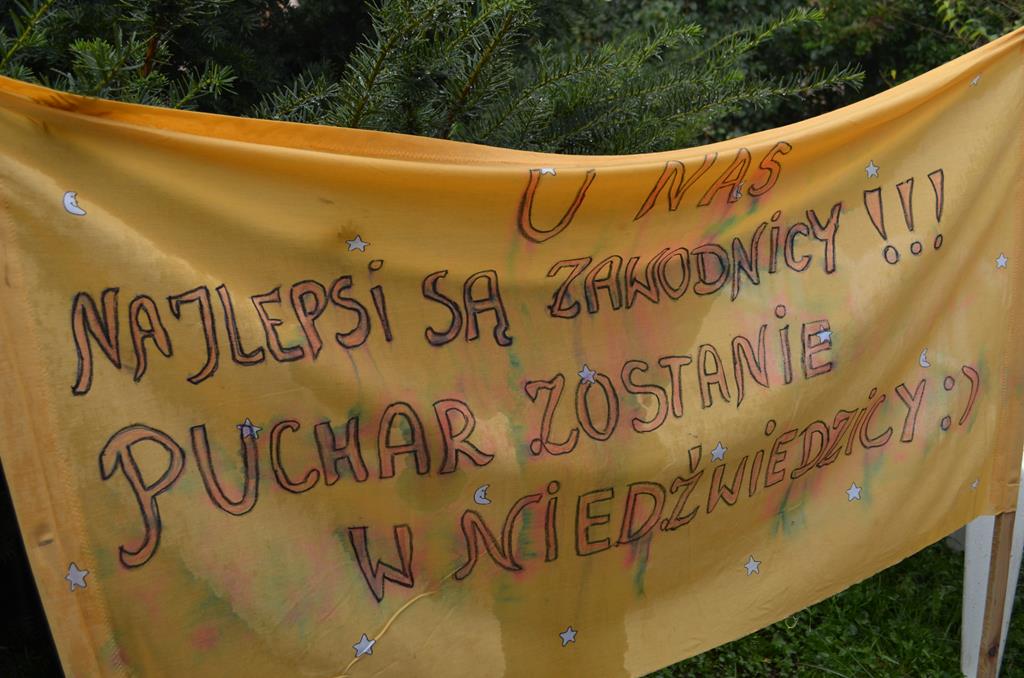 U NAS
NAJLEPSi SĄ ZAWODNiCY !!!
PUCHAR ZOSTANiE
W NiEDŹWiEDZiCY :)